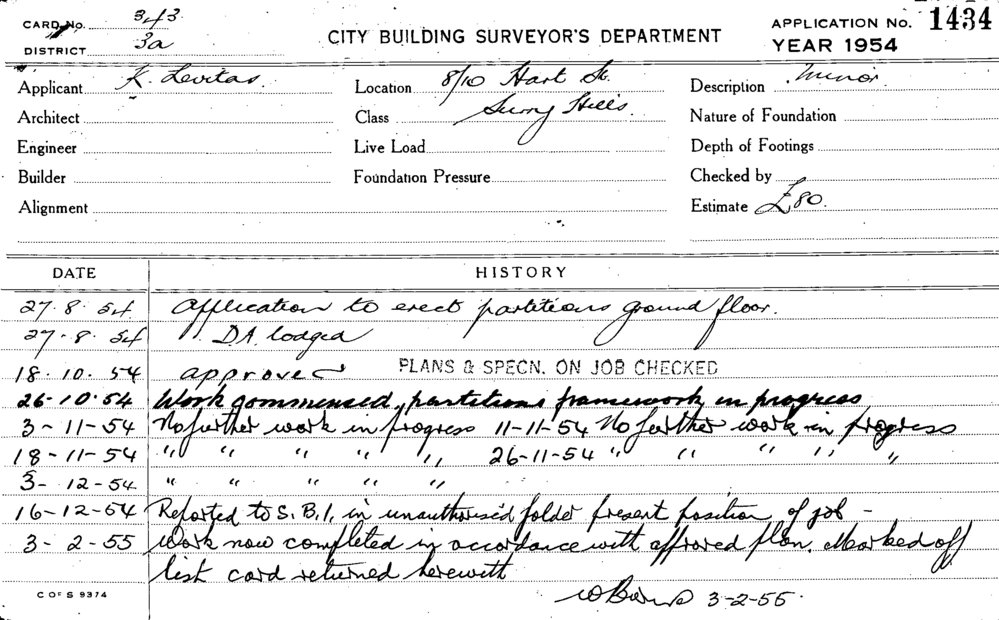 CARD No. 343
DISTRICT 3a
CITY BUILDING SURVEYOR'S DEPARTMENT
APPLICATION No. 1434
YEAR 1954
Applicant K. Levitas
Location 8/10 Hart St.
Description Minor
Architect
Class Surry Hills
Nature of Foundation
Engineer
Live Load
Depth of Footings
Builder
Foundation Pressure
Checked by
Alignment
Estimate £80.
DATE HISTORY
27.8.54 Application to erect partitions ground floor.
27.8.54 D.A. lodged
18.10.54 approved PLANS & SPECN. ON JOB CHECKED
26-10-54 Work commensed, partitions framework in progress
3-11-54 No further work in progress 11-11-54 No further work in progress
18-11-54 " " " " " 26-11-54 " " " " "
3-12-54 " " " " "
16-12-54 Reported to S.B.I. in unauthorised folder present position of job -
3-2-55 Work now completed in accordance with approved plan. Marked off
list card returned herewith
3-2-55.
C OF S 9374